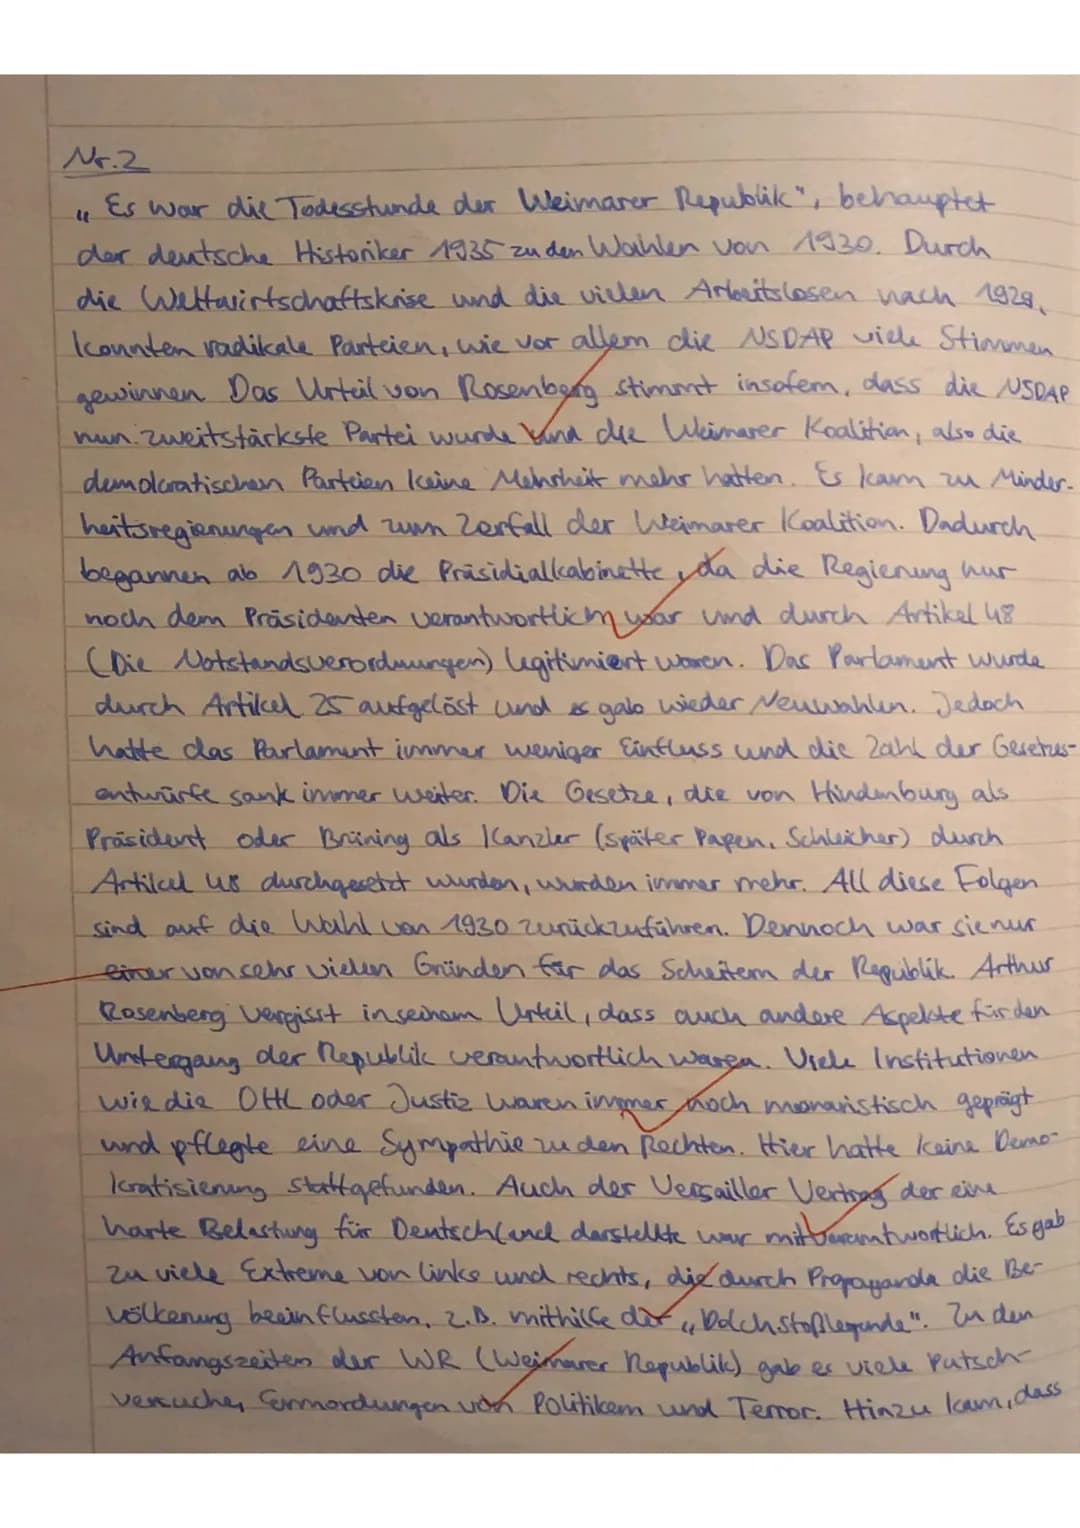 Nr.2
„Es war die Todesstunde der Weimarer Republik", behauptet
der deutsche Historiker 1935 zu den Wahlen von 1930. Durch
die Weltwirtschaftskrise und die vielen Arbeitslosen nach 1929,
konnten radikale Parteien, wie vor allem die NSDAP viele Stimmen
gewinnen. Das Urteil von Rosenberg stimmt insofern, dass die NSDAP
nun zweitstärkste Partei wurde und die Weimarer Koalition, also die
demokratischen Parteien keine Mehrheit mehr hatten. Es kam zu Minder-
heitsregierungen und zum Zerfall der Weimarer Koalition. Dadurch
begannen ab 1930 die Präsidialkabinette, da die Regierung nur
noch dem Präsidenten verantwortlich war und durch Artikel 48
(Die Notstandsverordnungen) legitimiert waren. Das Parlament wurde
durch Artikel 25 aufgelöst und es gab wieder Neuwahlen. Jedoch
hatte das Parlament immer weniger Einfluss und die Zahl der Gesetzes-
entwürfe sank immer weiter. Die Gesetze, die von Hindenburg als
Präsident oder Brüning als Kanzler (später Papen, Schleicher) durch
Artikel 48 durchgesetzt wurden, wurden immer mehr. All diese Folgen
sind auf die Wahl von 1930 zurückzuführen. Dennoch war sie nur
einer von sehr vielen Gründen für das Scheitern der Republik. Arthur
Rosenberg vergisst in seinem Urteil, dass auch andere Aspekte für den
Untergang der Republik verantwortlich waren. Viele Institutionen
wie die OHL oder Justiz waren immer noch monaristisch geprägt
und pflegte eine Sympathie zu den Rechten. Hier hatte keine Demo-
kratisierung stattgefunden. Auch der Versailler Vertrag der eine
harte Belastung für Deutschland darstellte war mitverantwortlich. Es gab
zu viele Extreme von links und rechts, die durch Propaganda die Be-
völkerung beeinflussten, z.B. mithilfe der „Dolchstoßlegende". Zu den
Anfangszeiten der WR (Weimarer Republik) gab es viele Putsch-
versuche, Ermordungen von Politikern und Terror. Hinzu kam, dass